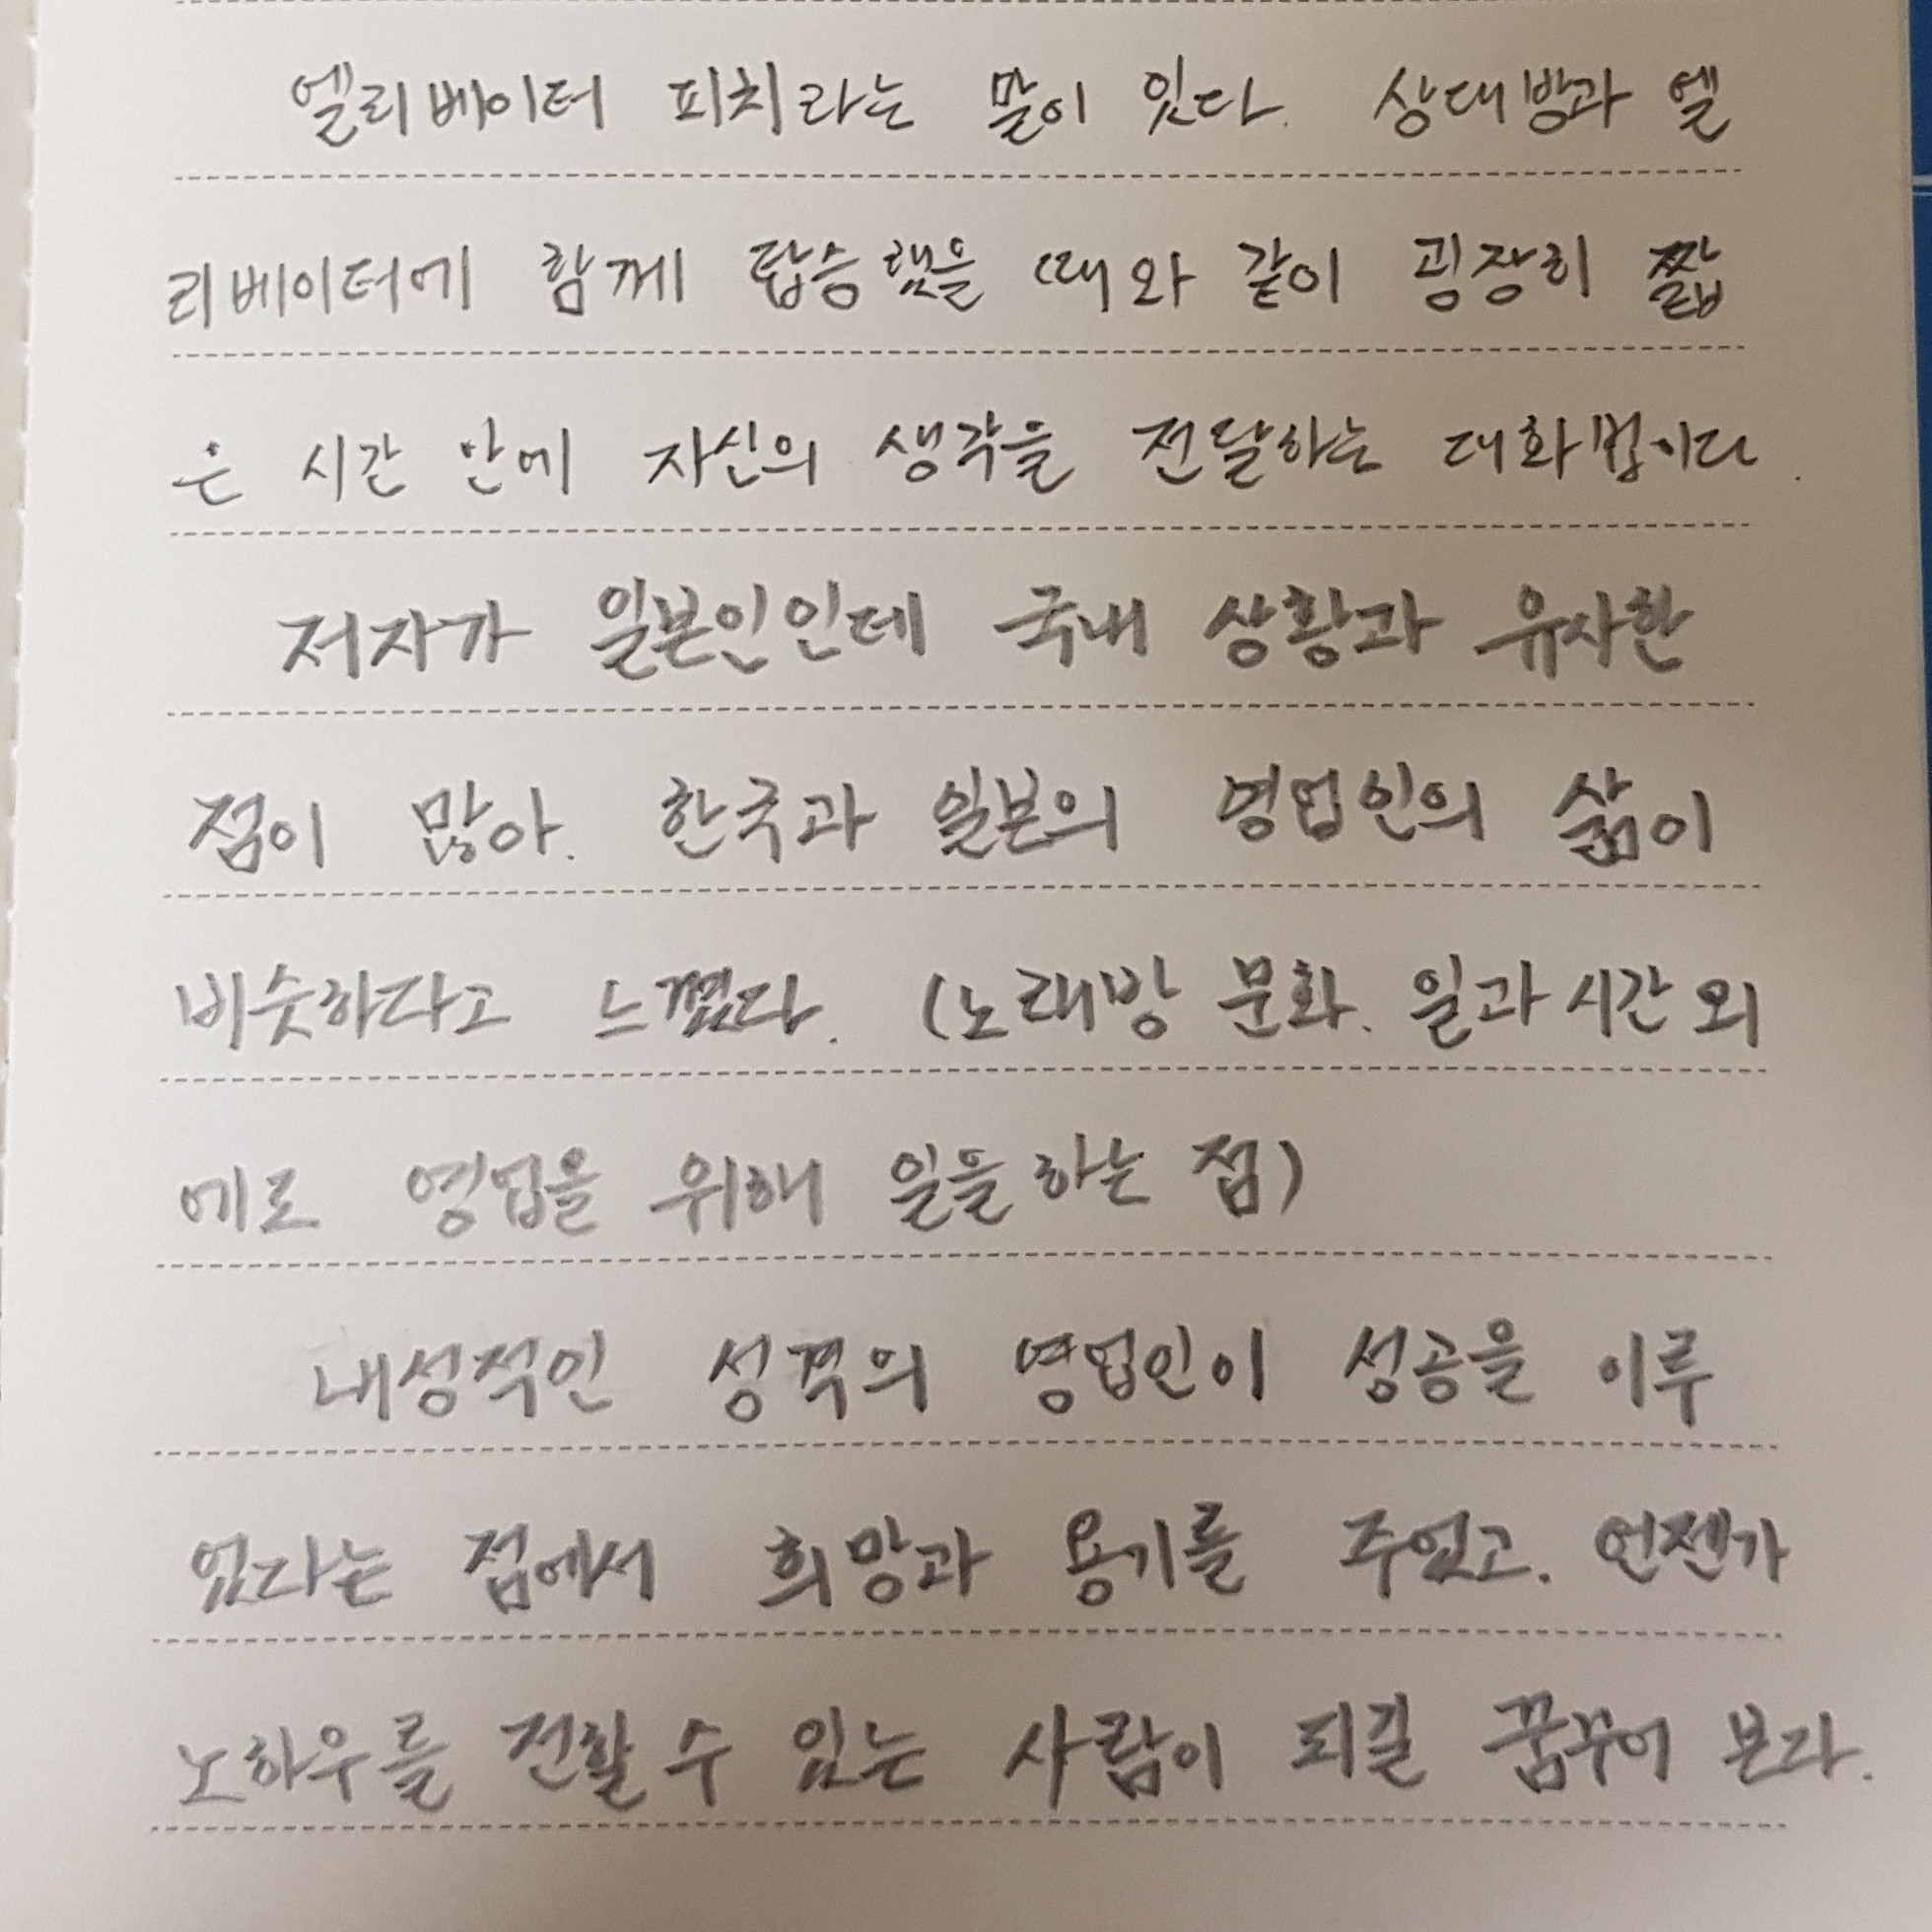 엘리베이터 피치라는 말이 있다. 상대방과 엘
리베이터에 함께 탑승했을 때와 같이 굉장히 짧
은 시간 안에 자신의 생각을 전달하는 대화법이다.
저자가 일본인인데 국내 상황과 유사한
점이 많아. 한국과 일본의 영업인의 삶이
비슷하다고 느꼈다. (노래방 문화. 일과시간 외
에로 영업을 위해 일들하는 점)
내성적인 성격의 영업인이 성공을 이루
었다는 점에서 희망과 용기를 주었고. 언젠가
노하우를 전할 수 있는 사람이 되길 꿈꾸어 본다.